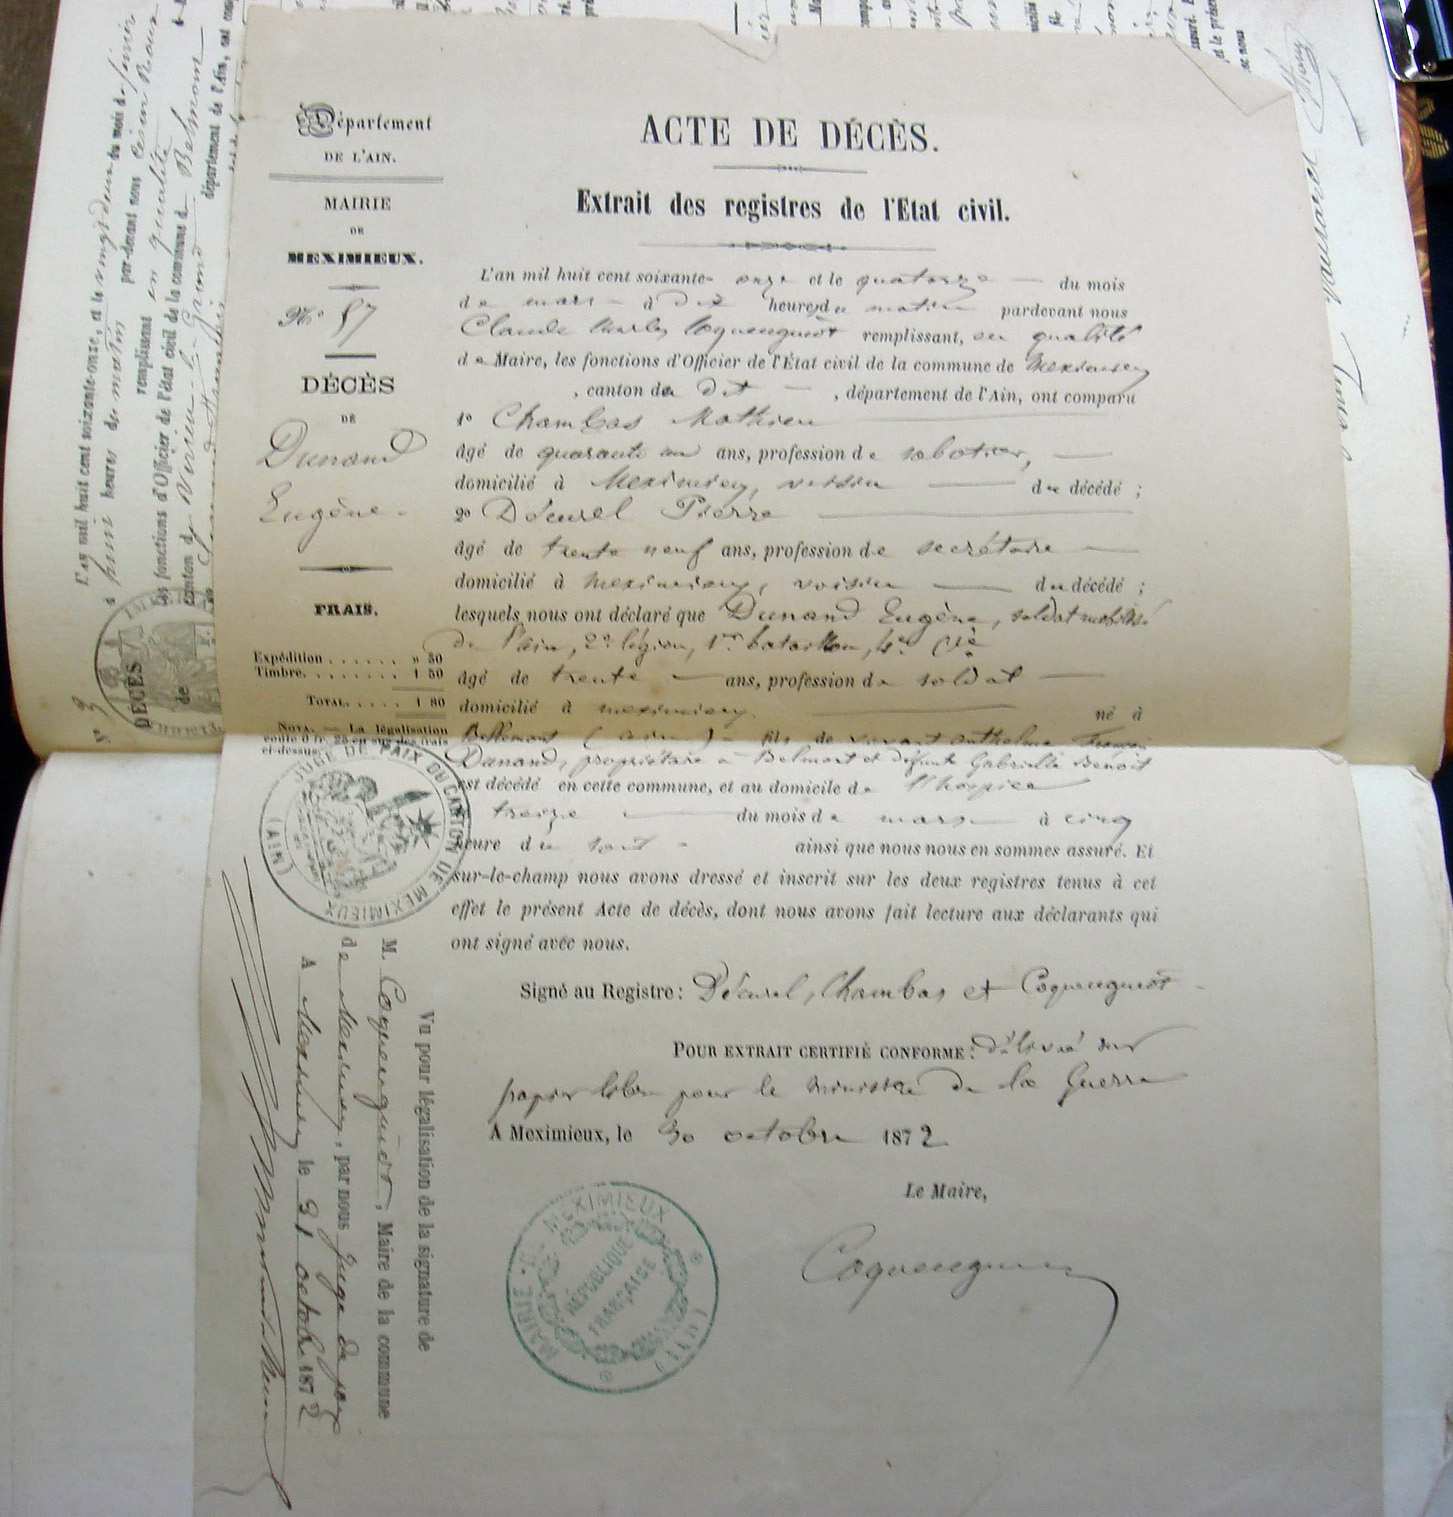 Département
DE L'AIN.
MAIRIE
DE
MEXIMIEUX.
No 57
DÉCÈS
DE
Dunand
Eugène.
FRAIS.
Expédition . . . . . . » 30
Timbre. . . . . . . . 1 50
TOTAL. . . . . 1 80
NOTA. — La légalisation
coûte 0 fr. 25 en sus des frais
ci-dessus.
JUGE DE PAIX DU CANTON DE MEXIMIEUX (AIN)
ACTE DE DÉCÈS.
Extrait des registres de l'Etat civil.
L'an mil huit cent soixante-onze et le quatorze du mois
de mars à dix heures du matin pardevant nous
Claude Coquenguiot remplissant, en qualité
de Maire, les fonctions d'Officier de l'État civil de la commune de Meximieux
, canton de dit , département de l'Ain, ont comparu
1o Chambas Mathieu
âgé de quarante un ans, profession de sabotier,
domicilié à Meximieux, voisin du décédé ;
2o Décurel Pierre
âgé de trente neuf ans, profession de secrétaire
domicilié à Meximieux, voisin du décédé ;
lesquels nous ont déclaré que Dunand Eugène, soldat mobilisé
de l'ain, 2e légion, 1er bataillon, 4e Cie
âgé de trente ans, profession de soldat
domicilié à meximieux né à
Bellmont (ain) fils de vivant anthelme François
Dunand, propriétaire à Belmont et défunte Gabrielle Benoit
est décédé en cette commune, et au domicile de l'hospice
treize du mois de mars à cinq
heure du soir ainsi que nous nous en sommes assuré. Et
sur-le-champ nous avons dressé et inscrit sur les deux registres tenus à cet
effet le présent Acte de décès, dont nous avons fait lecture aux déclarants qui
ont signé avec nous.
Signé au Registre : Décurel, Chambas et Coquenguiot
POUR EXTRAIT CERTIFIÉ CONFORME : délivré sur
papier libre pour le ministre de la Guerre
A Meximieux, le 30 octobre 1872
Le Maire,
Coquenguiot
MAIRIE DE MEXIMIEUX (AIN)
RÉPUBLIQUE
FRANÇAISE
Vu pour légalisation de la signature de
M. Coquenguiot, Maire de la commune
de Meximieux, par nous juge de paix
A Meximieux le 31 octobre 1872
L'an mil huit cent soixante-onze, et le vingt deux du mois de
à heures du matin par-devant nous
remplissant en qualité
les fonctions d'Officier de l'état civil de la commune de Belmont
canton de Virieu-le-Grand département de l'Ain, ont
No 3
DÉCÈS
de